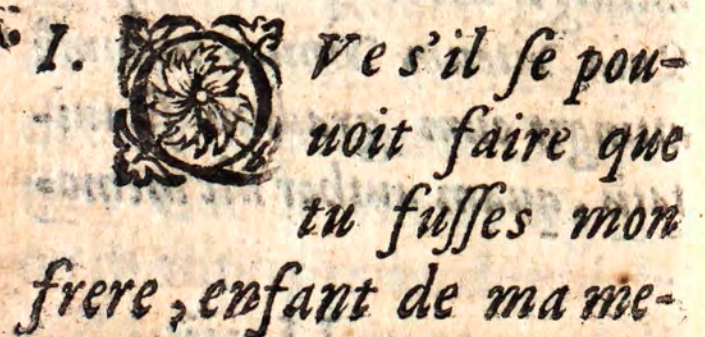 I. QVe s'il ſe pou-
uoit faire que
tu fuſſes mon
frere, enfant de ma me-